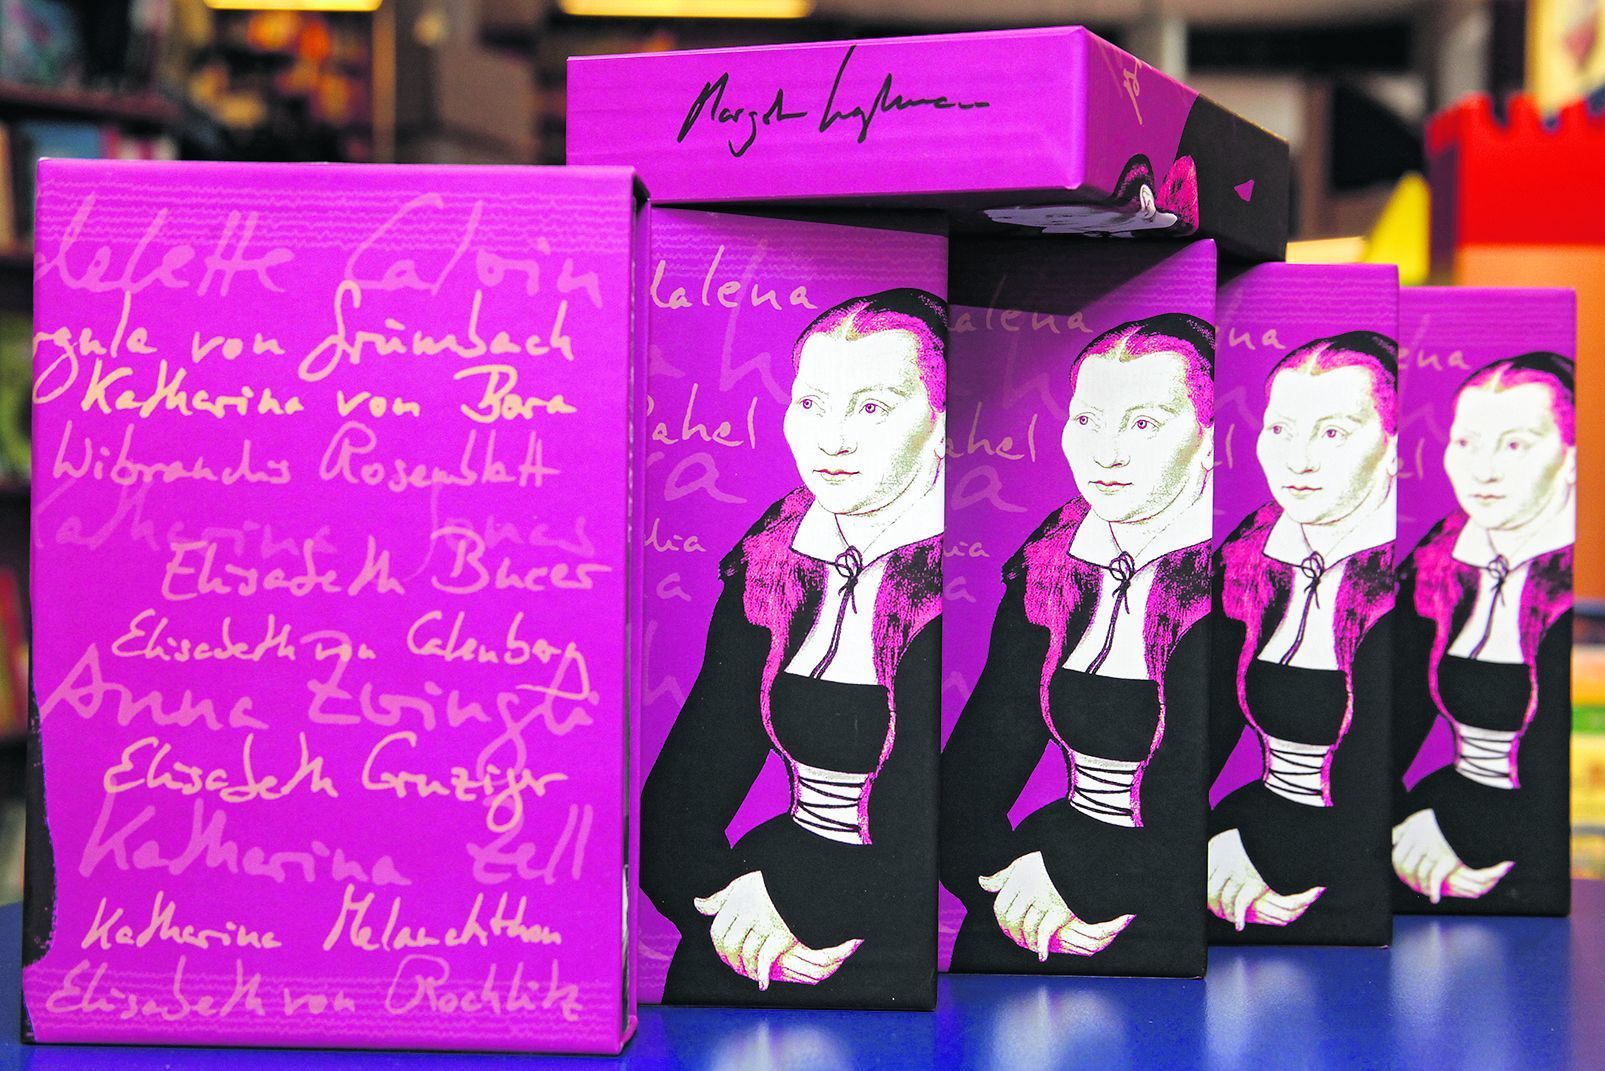 Margot
delette Calvin
rgula von Grumbach
Katharina von Bora
Wibrandis Rosenblatt
Katharina Jonas
Elisabeth Bucer
Elisabeth von Calenberg
Anna Zwingli
Elisabeth Cruziger
Katharina Zell
Katharina Melanchthon
Elisabeth von Rochlitz
dalena
Rahel
ra
dia
alena
ahel
a
lia
na
lena